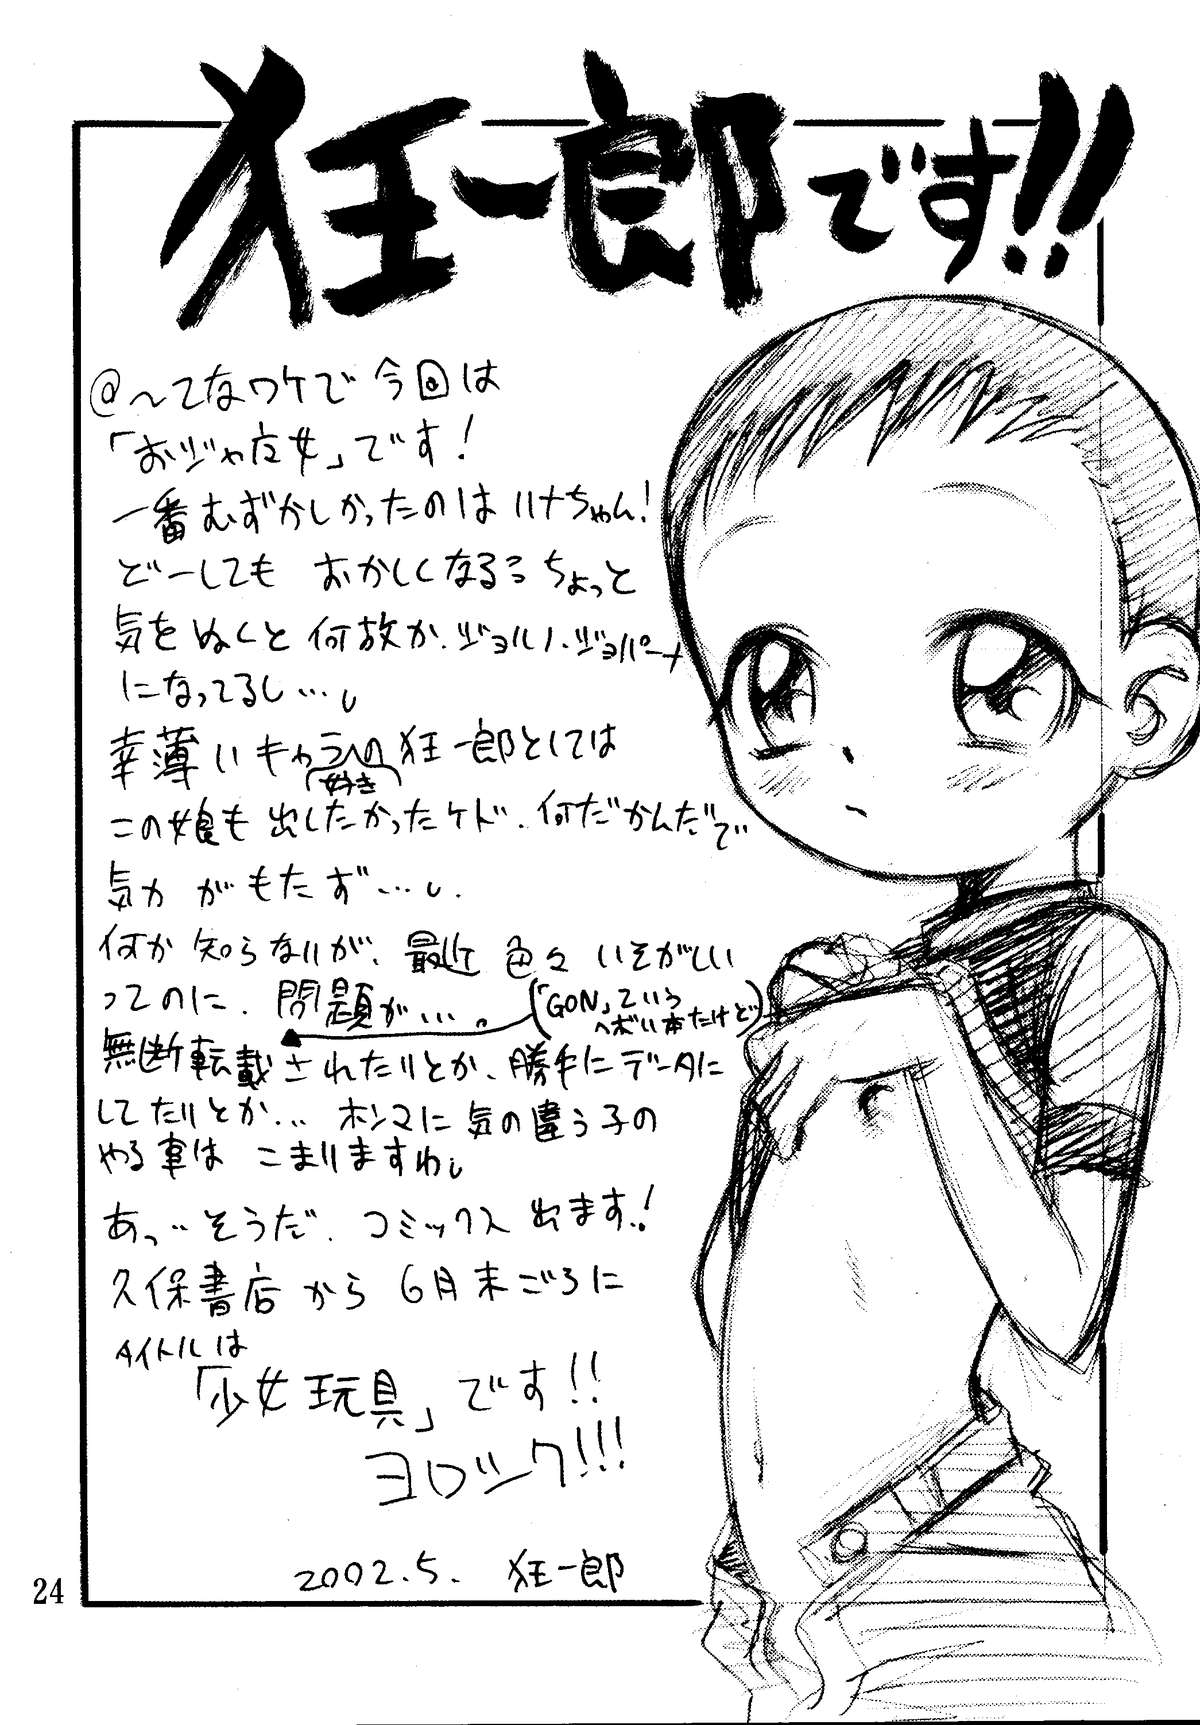 狂一郎です!!
@〜てなワケで今回は
「おジャ魔女」です!
一番むずかしかったのはハナちゃん!
どーしても おかしくなる ちょっと
気をぬくと何故か、ジョルノ・ジョバーナ
になってるし…
幸薄いキャラへの狂一郎としては
好き
この娘も出したかったケド、何だかんだで
気力がもたず…。
何か知らないが、最近 色々 いそがしい
ってのに、問題が…。
(「GON」ていう
ヘボい本だけど)
無断転載されたりとか、勝手にデータに
してたりとか… ホンマに気の違う子の
やる事は こまりますわ
あっ…そうだ、コミックス出ます!
久保書店から 6月末ごろに
タイトルは
「少女玩具」です!!
ヨロシク!!!
2002.5. 狂一郎
24